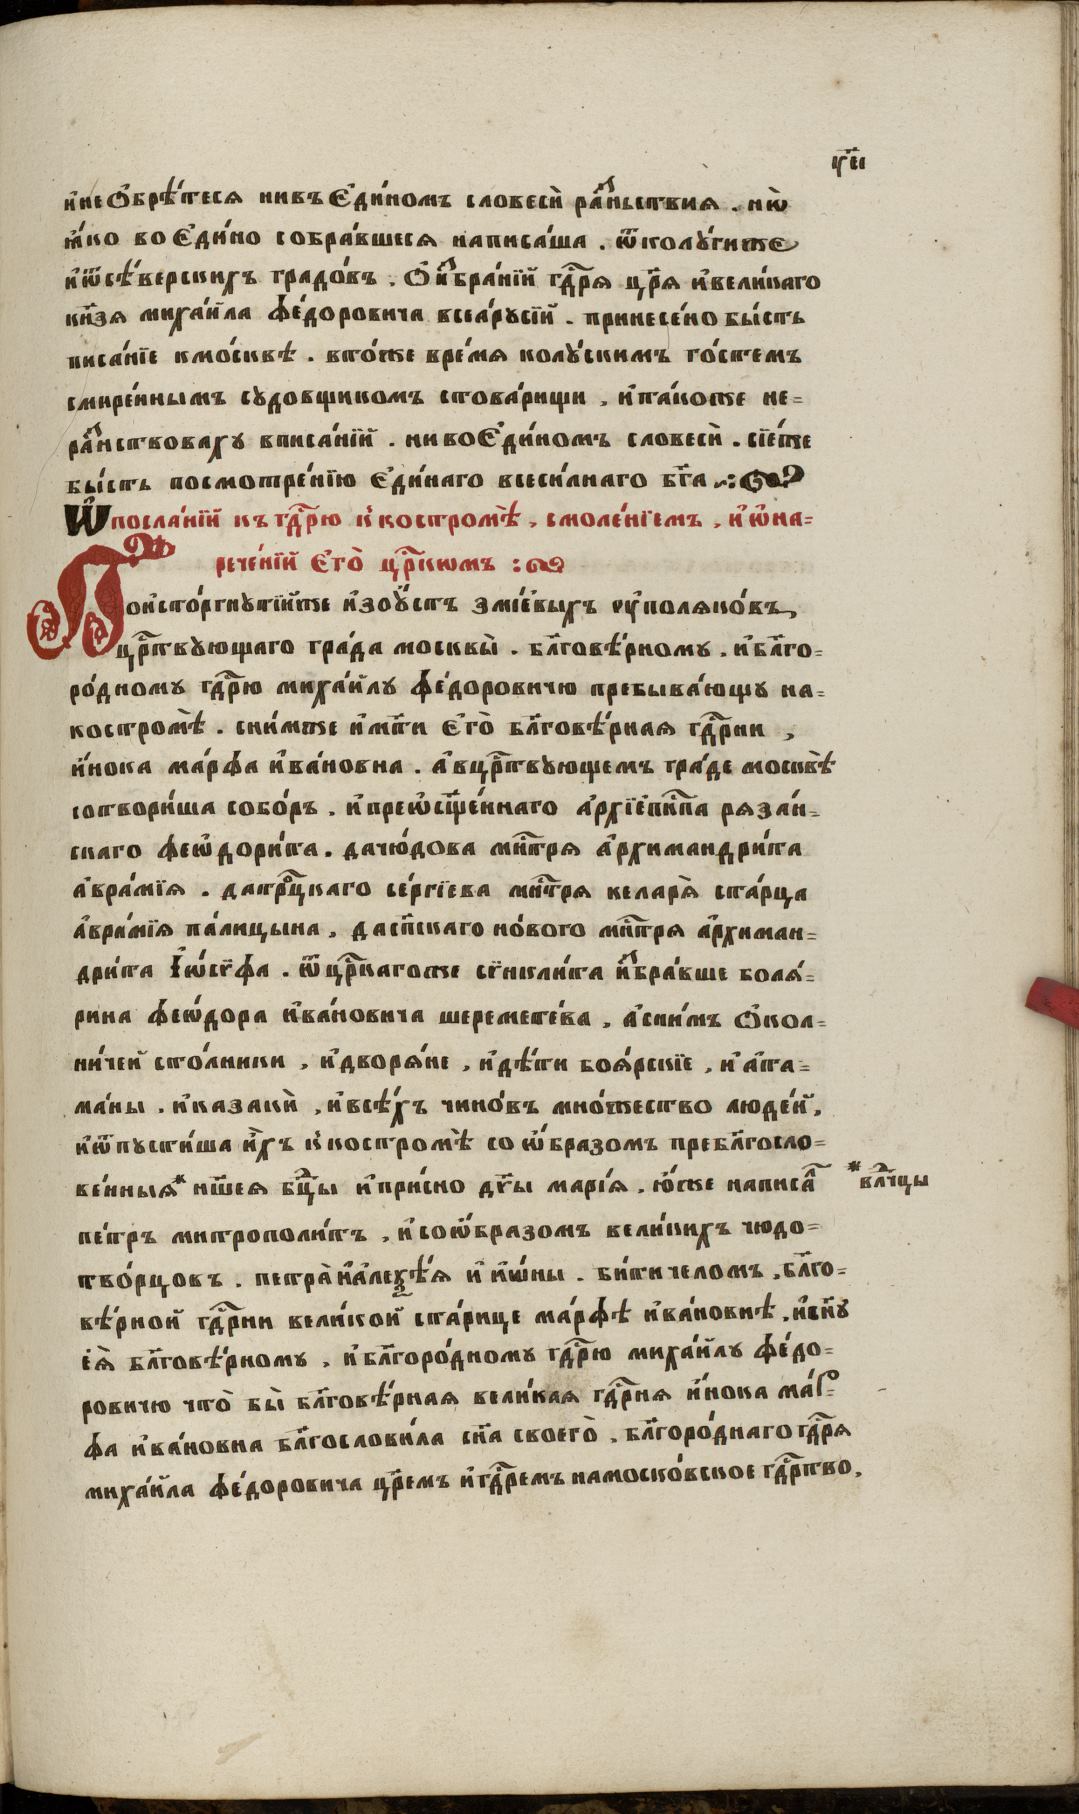 и҆не ѻ҆брѣ́теся нивъ є҆ди́номъ словеси̇̀ ра́зньствия . нѡ̀
ꙗ҆́ко во є҆ди́но собра́вшеся написа́ша . ѿколꙋ́гиже
и҆ѿсѣ́верскихъ градо́въ , ѻ҆и҆збра́нїй гдⷭ҇ря црⷭ҇я и҆вели́каго
кнзя миха́йла фе́доровича всеа́рꙋсїй . принесе́но бы́сть
писа́нїе кмо́сквѣ . вто́же вре́мя колꙋ́скимъ го́стемъ
смире́ннымъ сꙋдовщикомъ стова́рищи , и҆та́коже не=
ра́знствовахꙋ вписа́нїй . нивоє҆ди́номъ словеси̇̀ . сїе́же
бы́сть посмотре́нїю є҆ди́наго всеси́лнаго бг҃а
Ѡ҆посла́нїй къ гдⷭ҇рю к̾костромѣ̀ , смоле́нїемъ , и҆ ѡ҆на=
рече́нїй є҆го̀ црⷭ҇комъ :
Пои҆сто́ргнꙋтїи҆же и҆зоу҆́стъ змїе́выхъ ѿполяко́въ
црⷭ҇твꙋющаго гра́да москвы̀ . блг҃овѣ́рномꙋ . и҆блг҃о=
ро́дномꙋ гдⷭ҇рю миха́йлꙋ фе́доровичю пребыва́ющꙋ на=
костромѣ̀ . сни́мже и҆ мт҃и є҆го̀ блг҃овѣ́рная гдⷭ҇рни ,
и҆́нока ма́рфа и҆ва́новна . а҆вцрⷭ҇твꙋющемъ гра́де москвѣ̀
сотвори́ша собо́ръ . и҆преѡ҆сщ҃е́ннаго а҆рхїепⷭ҇кпа ряза́н=
скаго феѡ҆дори́та . дачю́дова мнⷭ҇тря а҆рхимандри́та
а҆вра́мїя . датрⷪ҇цкаго се́ргїева мнⷭ҇тря келаря̀ ста́рца
а҆вра́мїя па́лицына , даспⷭ҇скаго но́вого мнⷭ҇тря а҆рхиман=
дри́та і҆ѡ҆́сѵфа . ѿцрⷭ҇кагоже сѵнкли́та и҆збра́вше боля́=
рина феѡ́дора и҆ва́новича шереме́тева , а҆сни́мъ ѻ҆кол=
ни́чей сто́лники , и҆дворя́не , и҆дѣ́ти боя́рскїе , и҆ а҆та=
ма́ны . и҆казакѝ , и҆всѣ́хъ чино́въ мно́жество люде́й ,
и҆ѿпꙋсти́ша и҆́хъ к̾костромѣ̀ со ѡ҆́бразомъ преблг҃осло=
ве́нныя* нш҃ея бцⷣы и҆при́сно дв҃ы марі́я , ю҆́же написа́л
*влчⷣцы
пе́тръ митрополи́тъ , и҆соѡ҆́бразомъ вели́кихъ чюдо=
тво́рцовъ . петра̀ и҆а҆леѯѣ́я и҆ и҆ѡ́ны . би́ти челомъ , блг҃о=
вѣ́рной гдⷭ҇рни вели́кой ста́рице ма́рфѣ и҆ва́новнѣ , и҆сн҃ꙋ
є҆я̀ блг҃овѣ́рномꙋ , и҆блг҃оро́дномꙋ гдⷭ҇рю миха́йлꙋ фе́до=
ровичю что̀ бы̀ блг҃овѣ́рная вели́кая гдⷭ҇рня и҆́нока ма́р=
фа и҆ва́новна блг҃ослови́ла сн҃а своего̀ , блг҃оро́днаго гдⷭ҇ря
миха́йла фе́доровича црⷭ҇емъ и҆гдⷭ҇ремъ намоско́вское гдⷭ҇рство ,